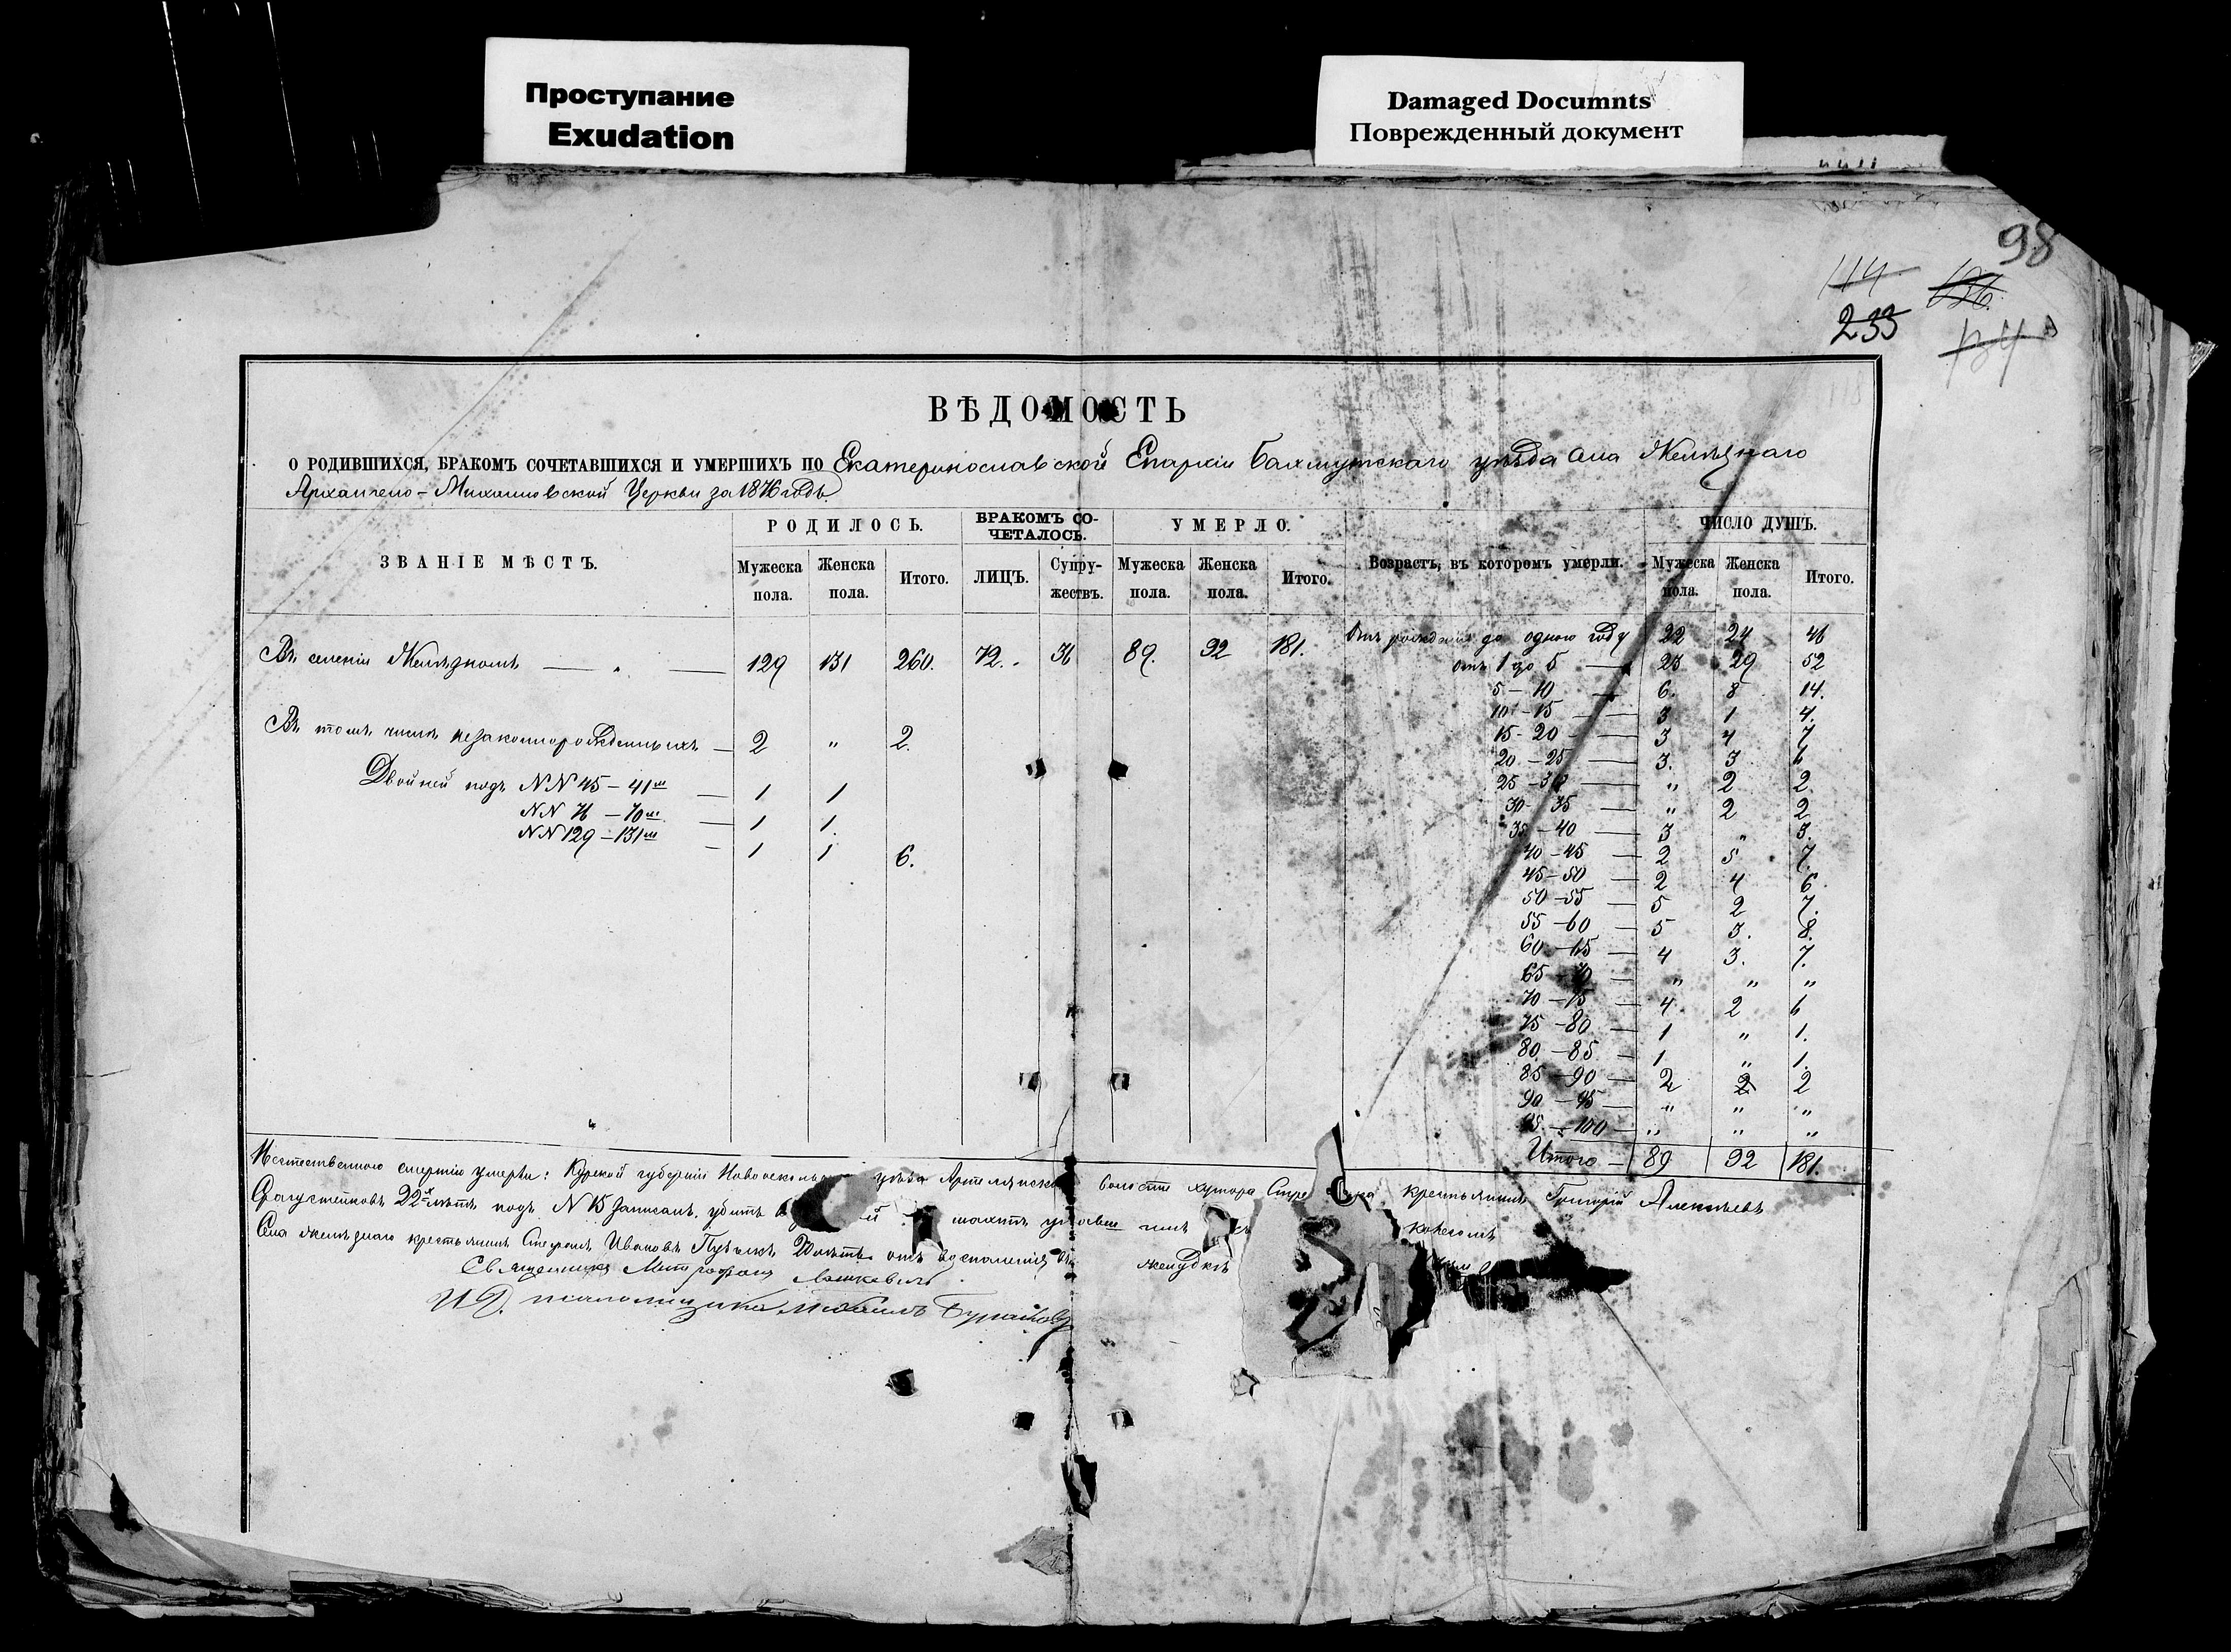 Проступание
Exudation
Damaged Documnts
Поврежденный документ
98
114
233
ВѢДОМОСТЬ
О РОДИВШИХСЯ, БРАКОМЪ СОЧЕТАВШИХСЯ И УМЕРШИХЪ ПО Екатеринославской Епархіи Бахмутскаго уѣзда села Желѣзнаго
Архангело-Михайловской Церкви за 1876 годъ.
ЗВАНІЕ МѢСТЪ. РОДИЛОСЬ. БРАКОМЪ СО-ЧЕТАЛОСЬ. УМЕРЛО. Возрастъ, въ которомъ умерли. ЧИСЛО ДУШЪ.
Мужеска пола. Женска пола. Итого. ЛИЦЪ. Супру-жествъ. Мужеска пола. Женска пола. Итого. Мужеска пола. Женска пола. Итого.
Въ селеніи Желѣзномъ — „ — 129 131 260. 72. 36 89. 92 181. Отъ рожденія до одного году 22 24 46
отъ 1 до 5 — 23 29 52
5 — 10 — 6. 8 14.
10 — 15 — 3 1 4.
Въ томъ числѣ незаконнорожденныхъ — 2 „ 2. 15 - 20 — 3 4 7
20 — 25 — 3. 3 6
Двойней подъ NN 45 — 41м — 1 1 25 — 30 — „ 2 2
NN 76 — 70м — 1 1. 30 - 35 — „ 2 2
NN 129 — 131м — 1 1 6. 35 — 40 — 3 „ 3.
40 — 45 — 2 5 7.
45 — 50 — 2 4 6
50 — 55 — 5 2 7.
55 — 60 — 5 3. 8.
60 — 65 — 4 3. 7.
65 — 70 — „ „ „
70 — 75 — 4 2 6
75 — 80 — 1 „ 1.
80 — 85 — 1 „ 1.
85 — 90 — 2 2 2
90 — 95 — „ „ „
95 — 100 — „ „ „
Итого — 89 92 181.
смертію умерли: Курской губерніи уѣзда волости хутора крестьянинъ Григорій Алексѣевъ
22х лѣтъ подъ N 15 записанъ, убитъ шахтѣ
Села Желѣзнаго крестьянинъ Стефанъ Ивановъ отъ воспаленія желудкѣ
Священникъ Митрофанъ
И.Д. псаломщика